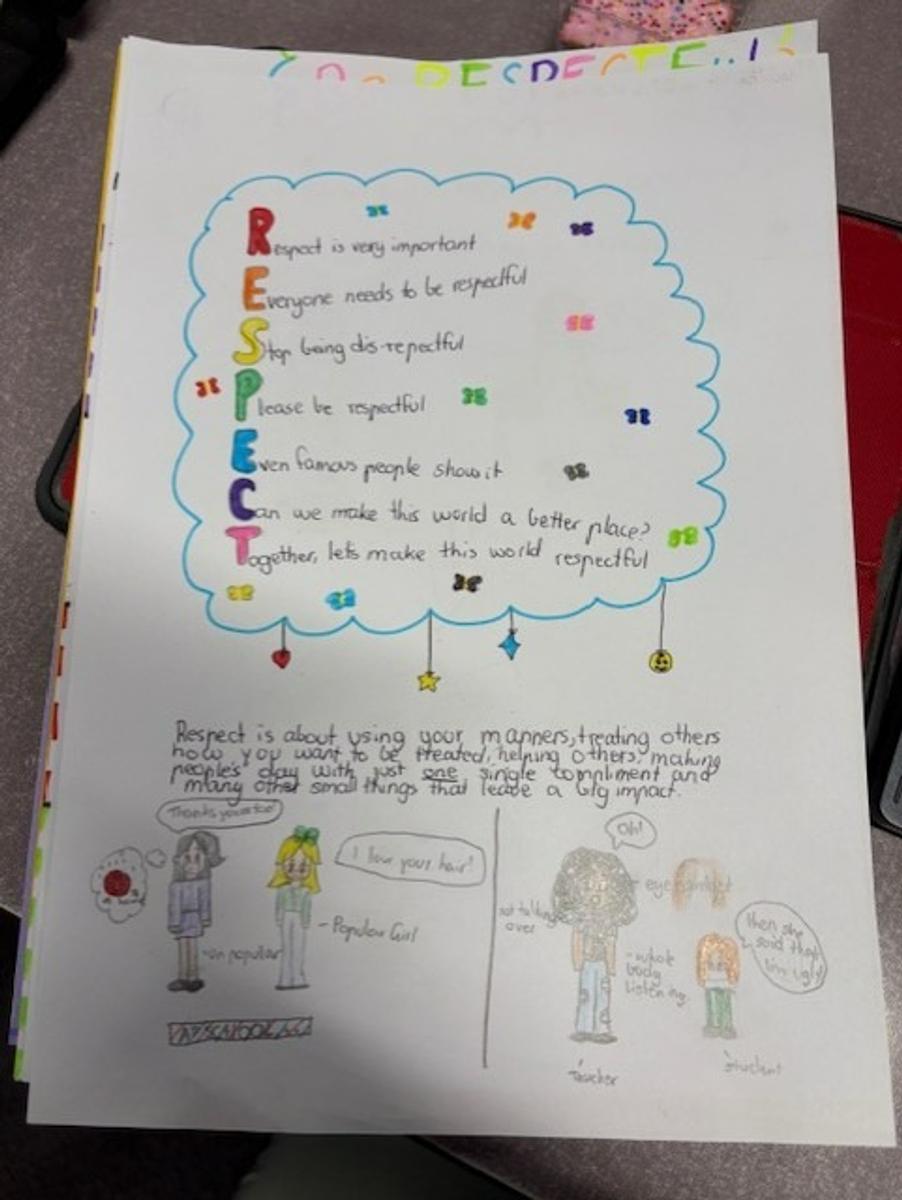 Respect is very important
Everyone needs to be respectful
Stop being dis-repectful
Please be respectful
Even famous people show it
Can we make this world a better place?
Together, lets make this world respectful
Respect is about using your manners, treating others
how you want to be treated, helping others, making
people's day with just one single compliment and
many other small things that leave a big impact.
Thanks you too!
I love your hair!
- Popular Girl
-un popular
AT SCHOOL
Oh!
not talking
over
- whole
body
listening
then she
said that
I'm ugly
teacher
Student